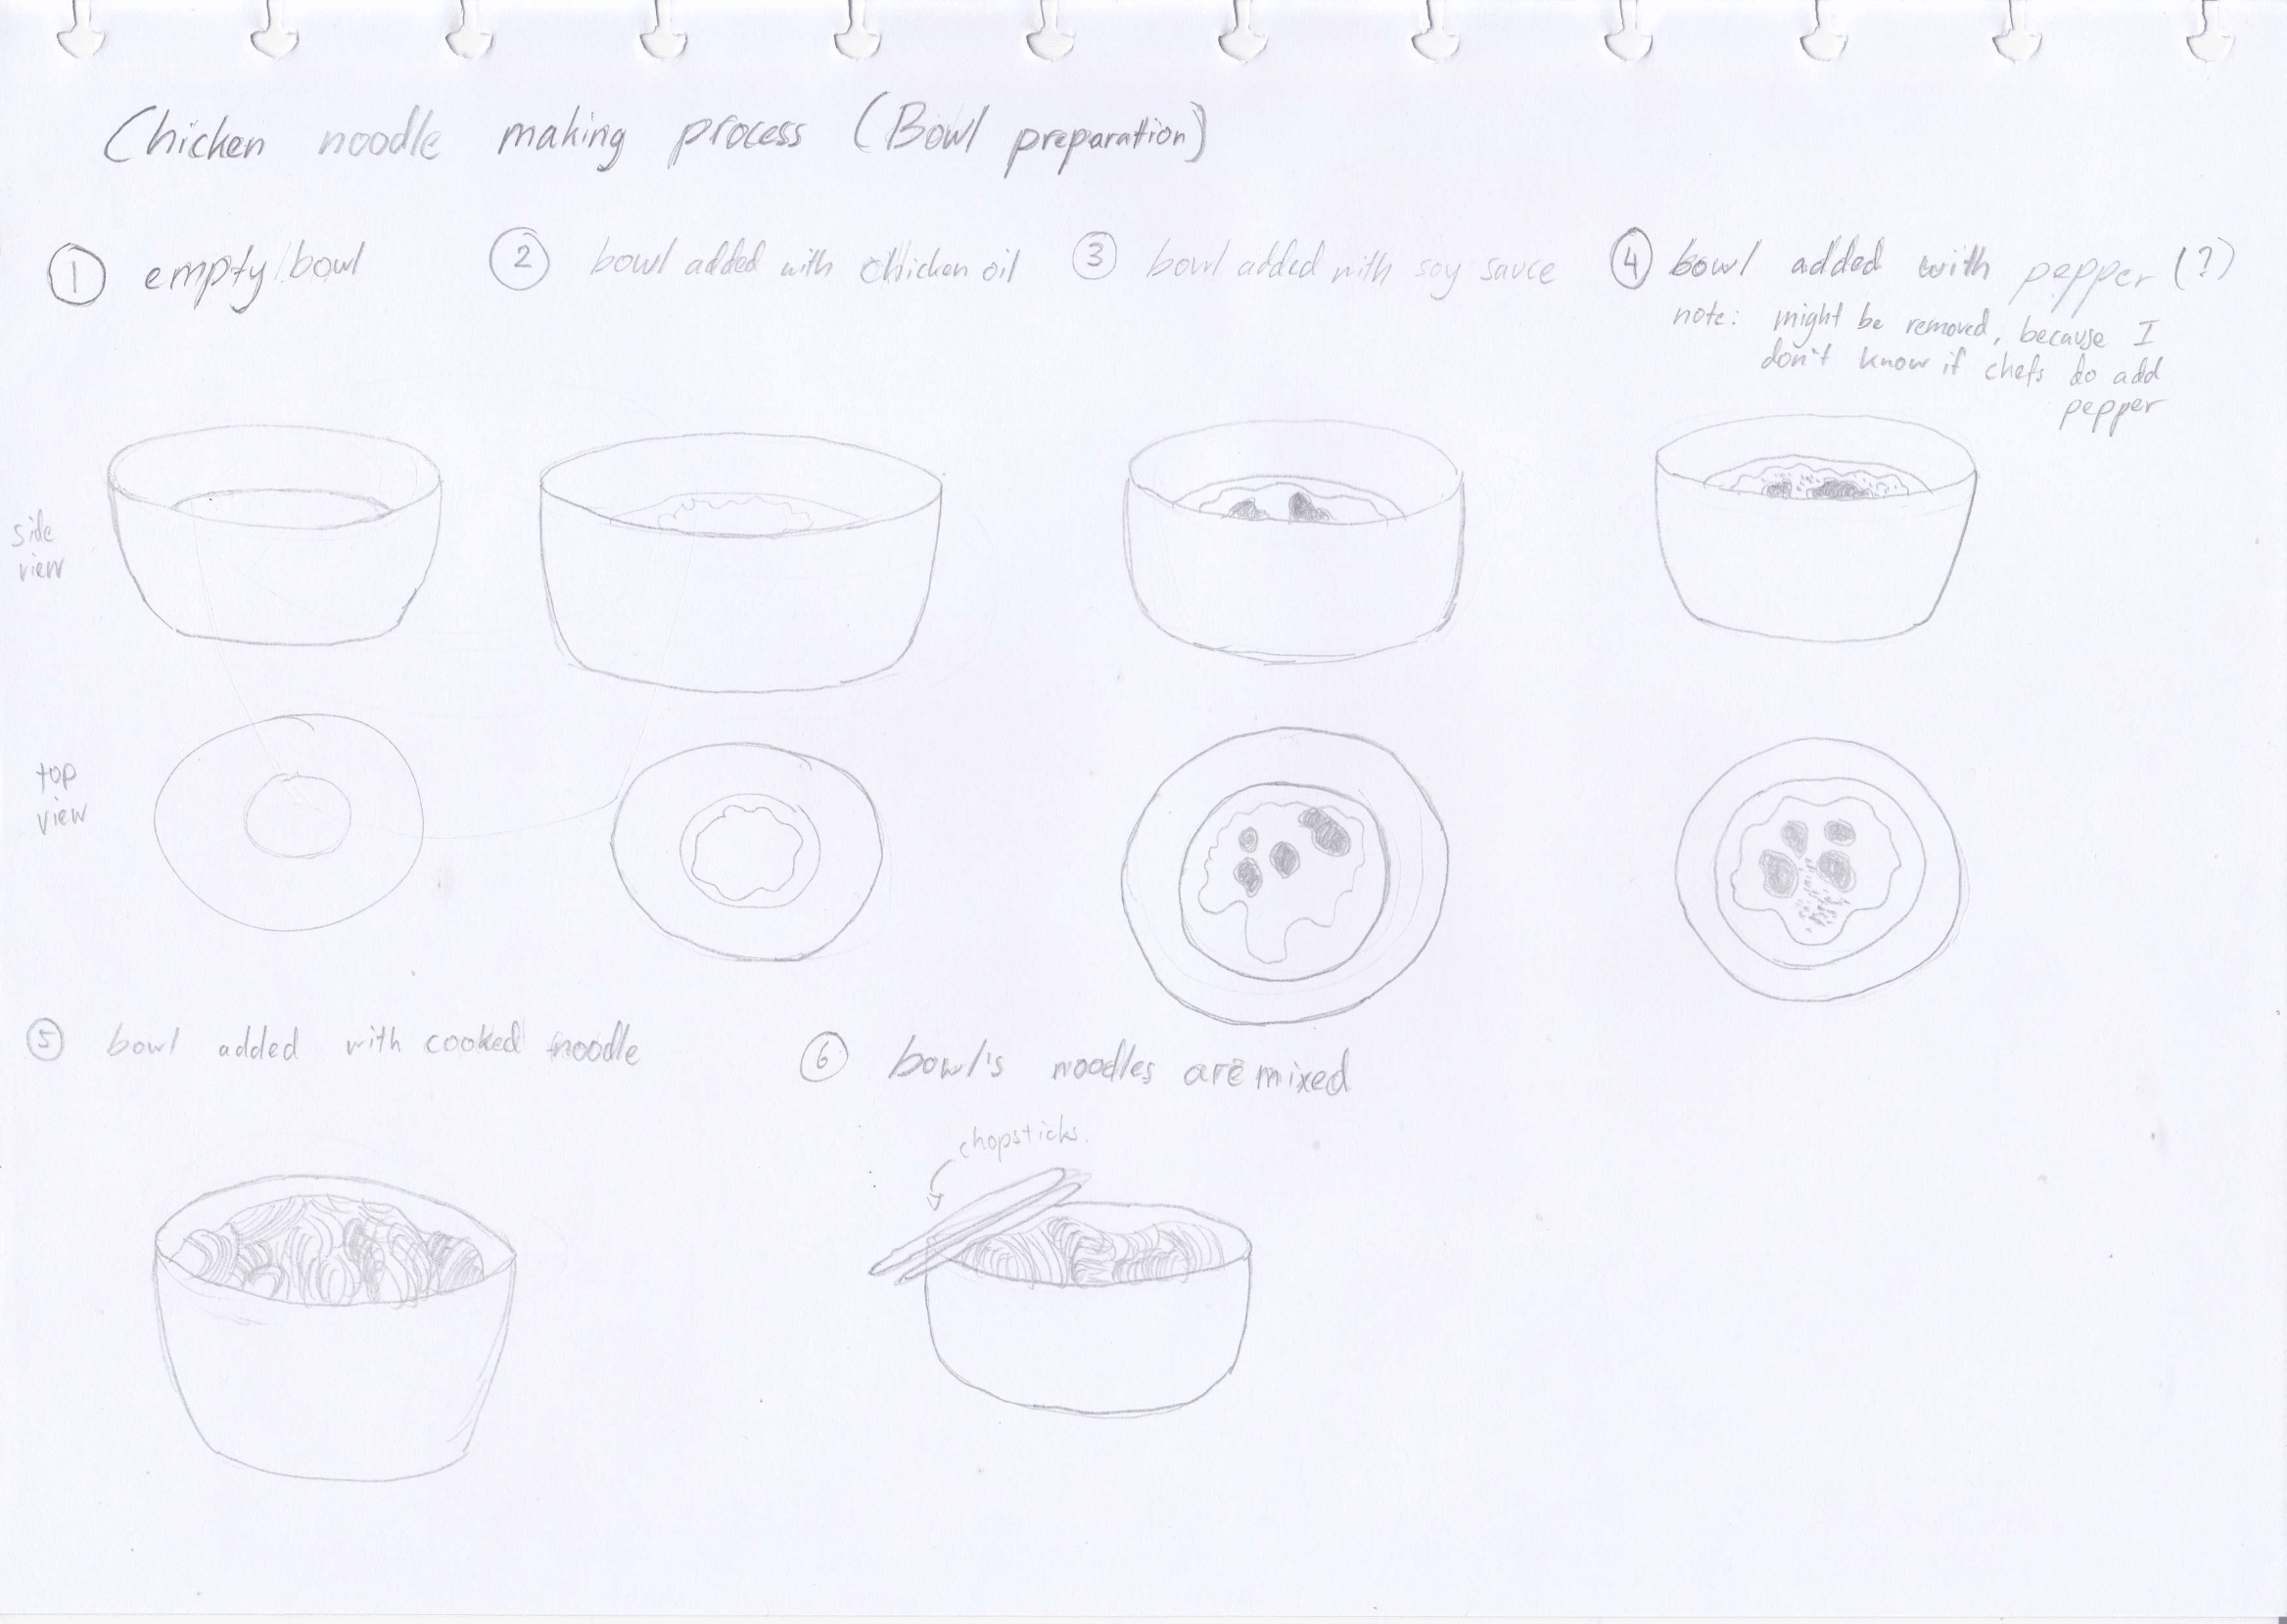 Chicken noodle making process (Bowl preparation)
1 empty bowl
2 bowl added with chicken oil
3 bowl added with soy sauce
4 bowl added with pepper (?)
note: might be removed, because I
don't know if chefs do add
pepper
side
view
top
view
5 bowl added with cooked noodle
6 bowl's noodles are mixed
chopsticks.